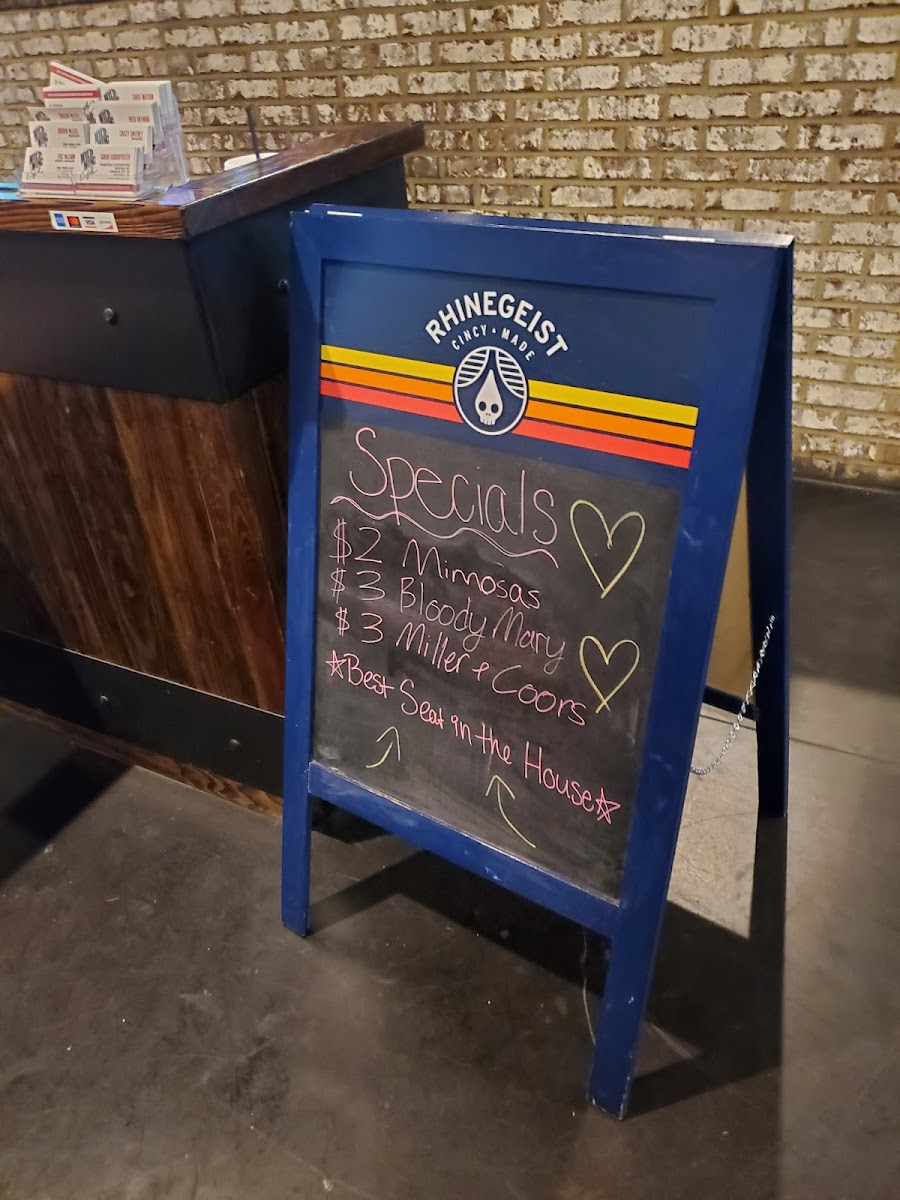 RHINEGEIST
CINCY MADE
Specials
$2 Mimosas
$3 Bloody Mary
$3 Miller + Coors
☆Best Seat in the House☆
VISA